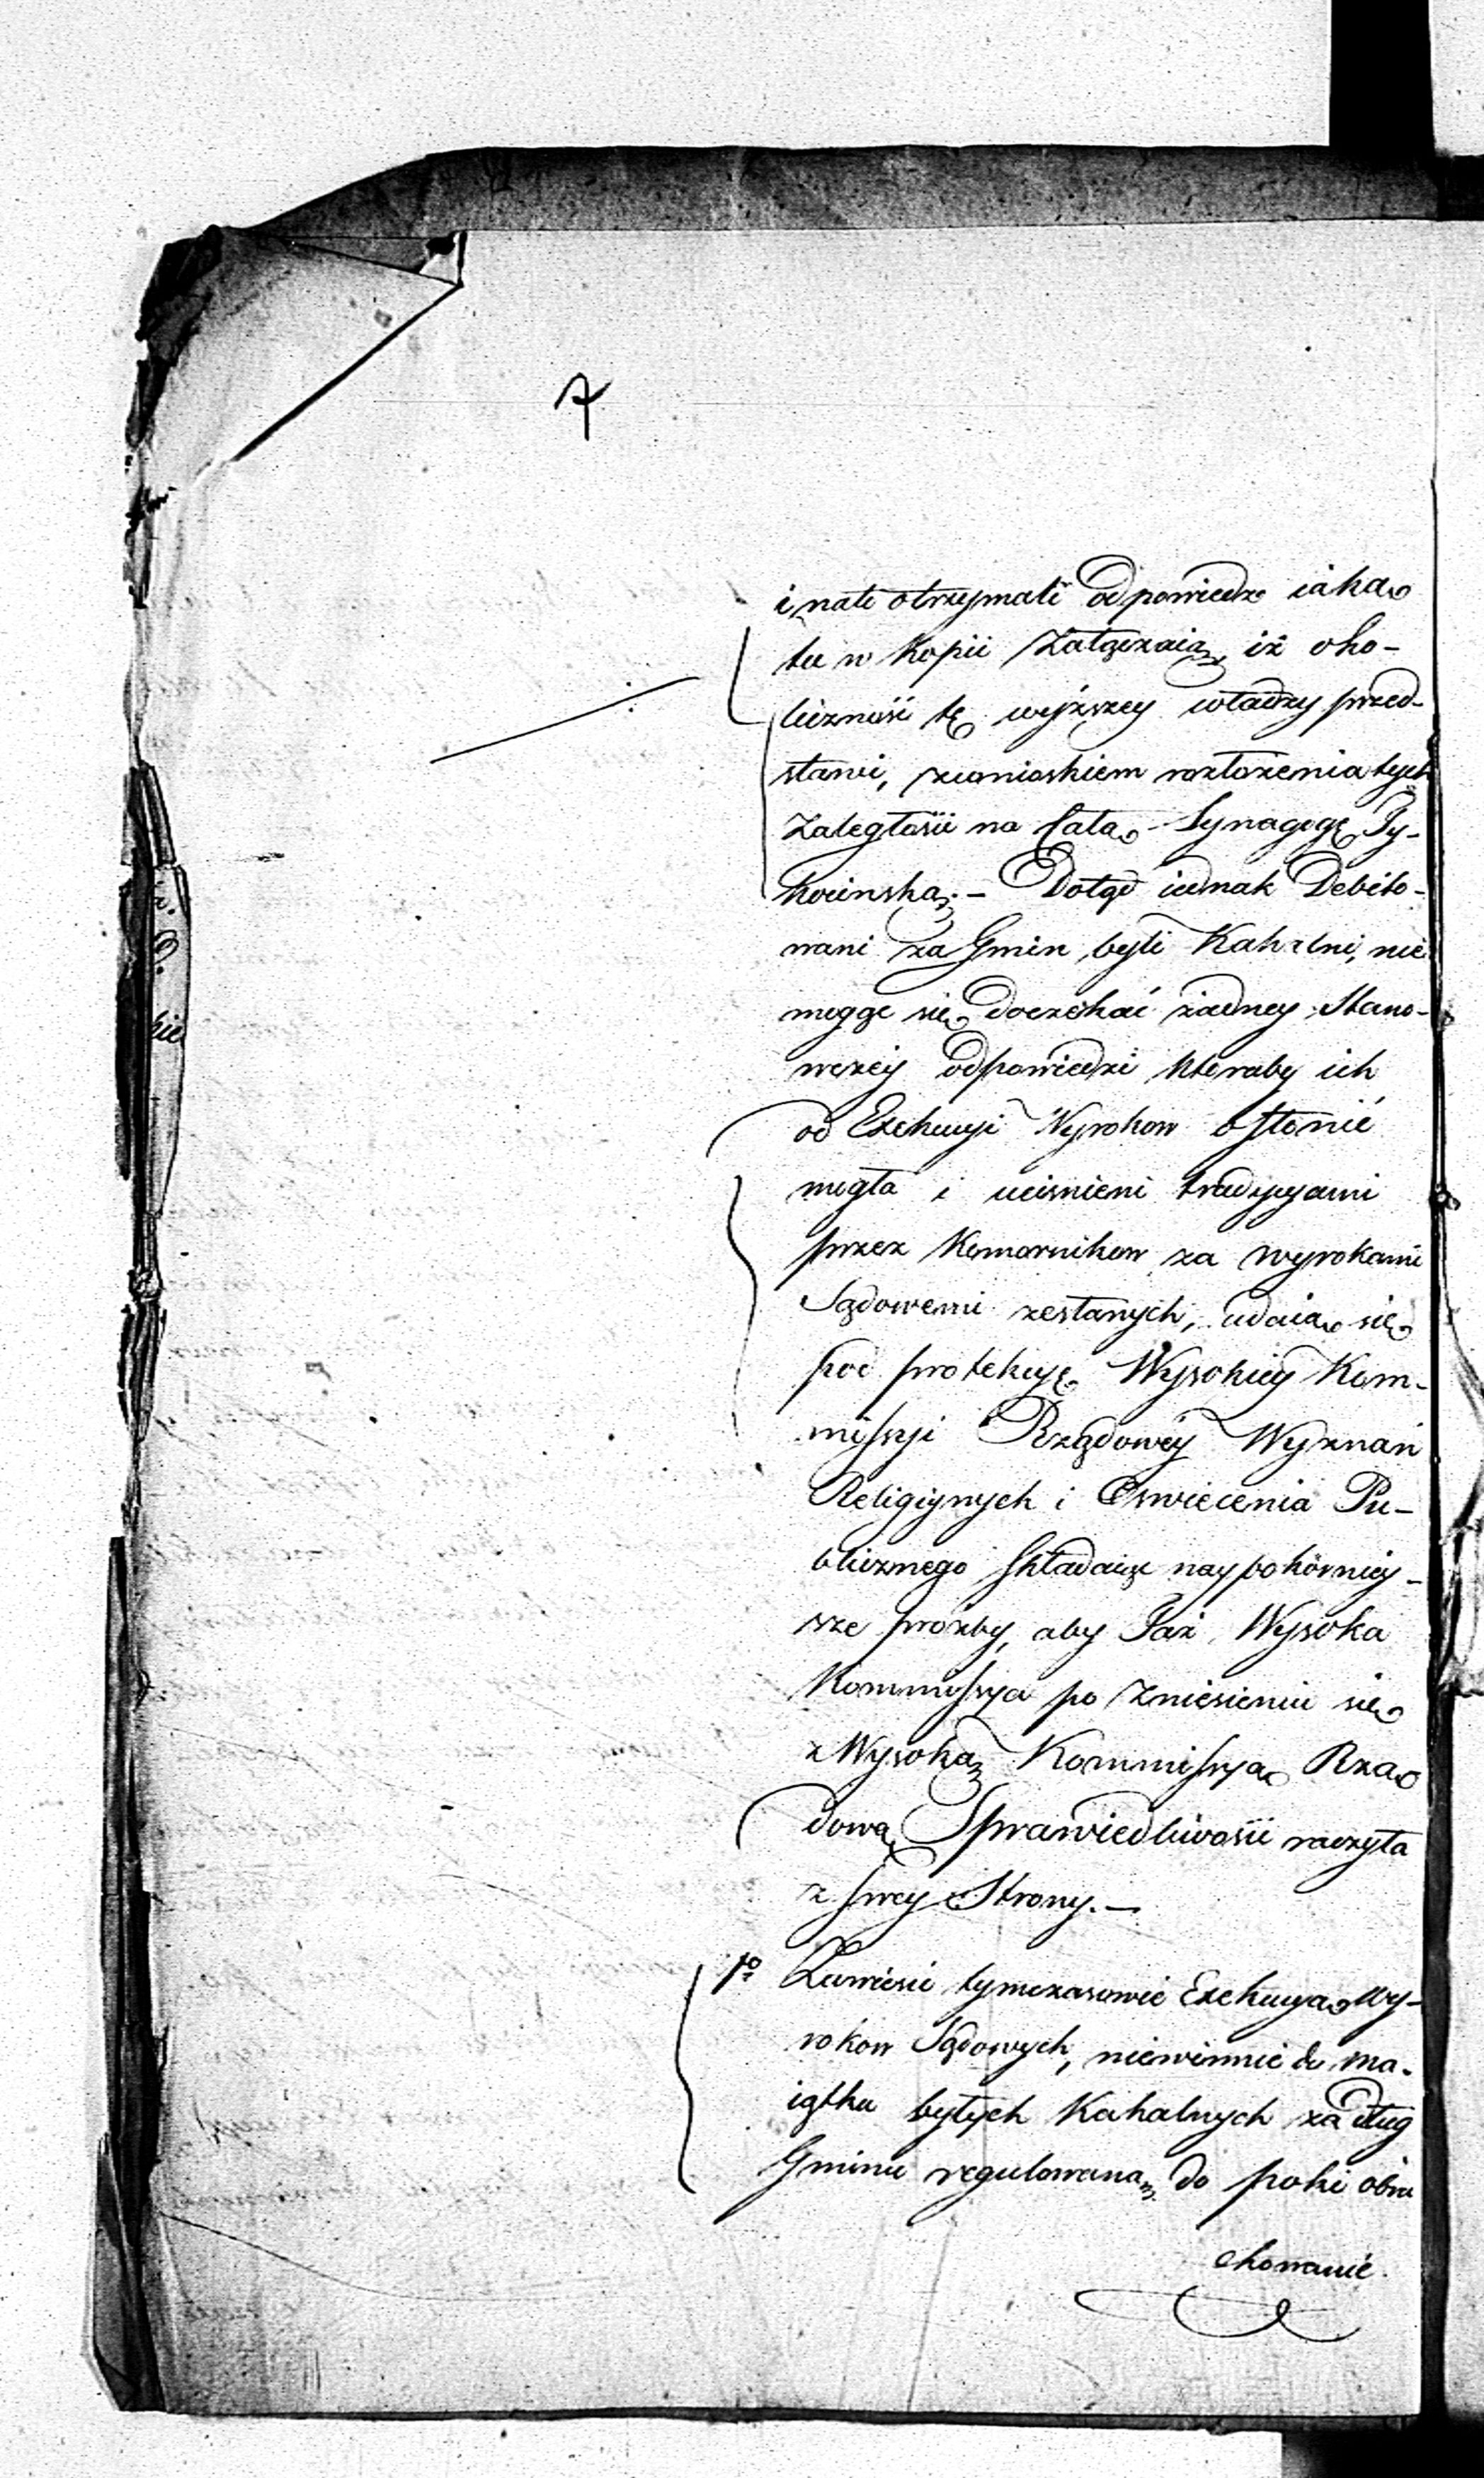 7
i nate otrzymali odpowiedz iaką
tu w Kopii załączaią, iż oko-
liczność tę wyższey władzy przed-
stawi, z wnioskiem rozłożenia tych
Zaległości na Całą Synagogę Ty-
kocinską. — Dotąd iednak Debito-
wani za Gmin byli Kahalni, nie
mogąc się doczekać żadney Stano-
wczéy odpowiedzi któraby ich
od Exekucyi Wyrokow osłonić
mogła i ucisnieni tradycyami
przez Komornikow za wyrokami
Sądowemi zesłanych, udaią się
pod protekcyę Wysokiéy Kom-
missyi Rządowéy Wyznań
Religiynych i Oswiecenia Pu-
blicznego składaiąc naypokórniey-
sze prozby, aby Taż Wysoka
Kommissya po zniesieniu się
z Wysoką Kommissyą Rzą
dową Sprawiedliwości raczyła
z swey Strony. —
1º Zawiesić tymczasowie Exekucyą Wy-
rokow Sądowych, niewinnie do ma-
iątku byłych Kahalnych za dług
Gminu regulowaną do poki obra
chowanie.